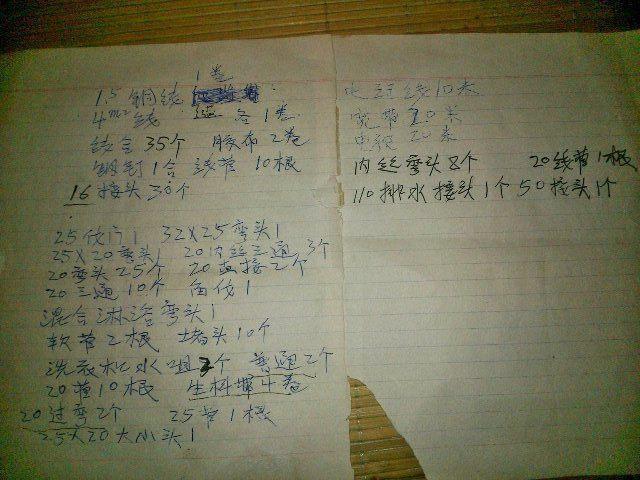 1卷
1.5铜线
4m²线 各1卷
线盒35个 胶布2卷
钢钉1合 线管10根
16接头30个
25伐门1 32X25弯头1
25X20弯头1 20内丝三通3个
20弯头25个 20直接2个
20三通10个 角伐1
混合淋浴弯头1
软管2根 堵头10个
洗衣机水咀个 普通2个
20管10根 生料带卷
20过弯2个 25管1根
25X20大小头1
线10米
宽带20米
电视20米
内丝弯头8个 20线管1根
110排水接头1个 50接头1个